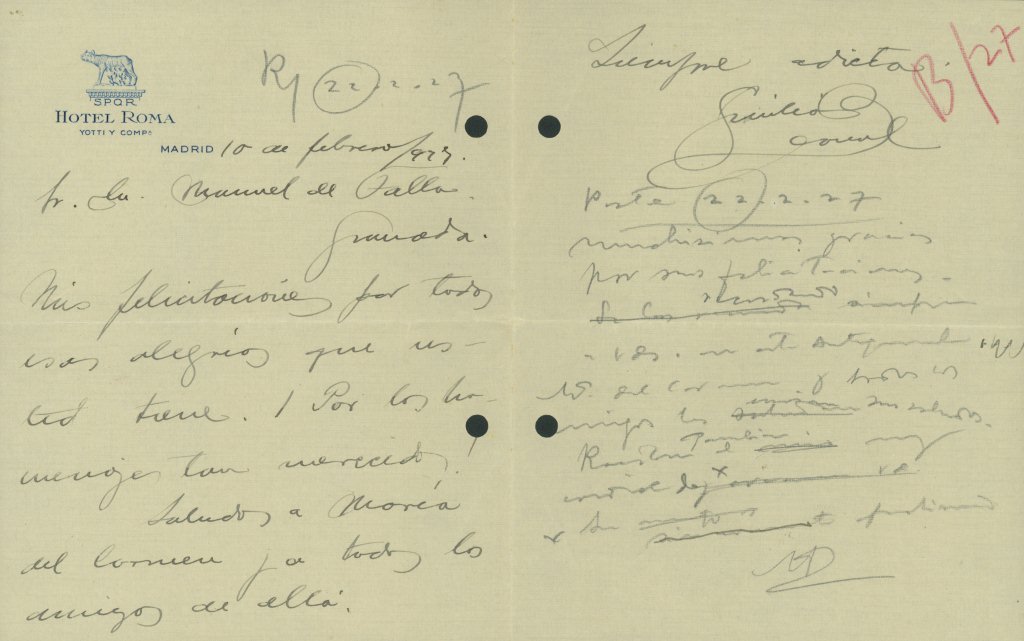 SPQR
HOTEL ROMA
YOTTI Y COMPª
MADRID 10 de febrero/927.
R/ 22-2-27
Sr. Dn. Manuel de Falla
Granada.
Mis felicitaciones por todas
esas alegrías que us-
ted tiene. ¡Por los ho-
menajes tan merecidos!
Saludos a María
del Carmen y a todos los
amigos de ellá.
Siempre adicta
B/27
Rpta 22-2-27
muchísimas gracias
por sus felicitaciones
recordando siempre
a Vds. en esta
Mª del Carmen y todos los
amigos les envían sus saludos.
también muy
cordial